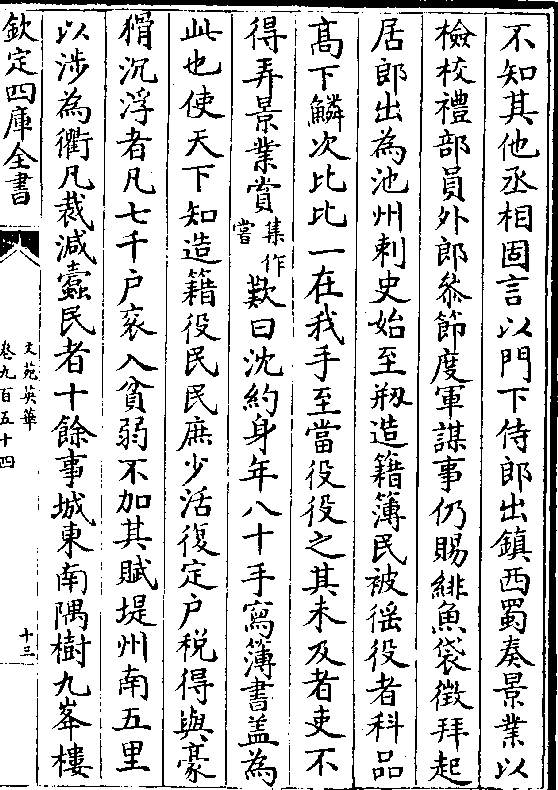 不知其他丞相固言以門下侍郎出鎮西蜀奏景業以
檢校禮部員外郎叅節度軍謀事仍賜緋魚袋徵拜起
居郎出為池州刺史始至剏造籍簿民被徭役者科品
髙下鱗次比比一在我手至當役役之其未及者吏不
得弄景業賞集作嘗歎曰沈約身年八十手寫簿書盖為
此也使天下知造籍役民民庶少活復定户税得與豪
猾沉浮者凡七千户衮入貧弱不加其賦堤州南五里
以涉為衢凡裁減蠹民者十餘事城東南隅樹九峯樓
欽定四庫全書
文苑英華
卷九百五十四
十三